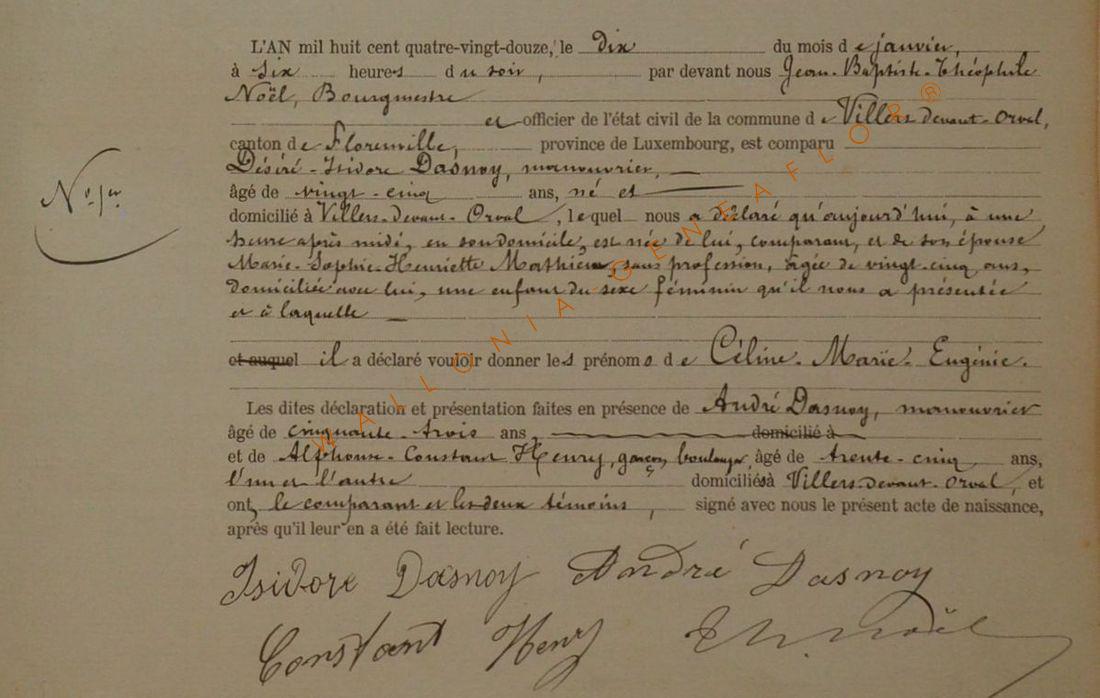 L'AN mil huit cent quatre-vingt-douze, le dix du mois de janvier,
à six heures du soir, par devant nous Jean-Baptiste-Théophile
Noël, Bourgmestre
et officier de l'état civil de la commune de Villers devant-Orval,
canton de Florenville, province de Luxembourg, est comparu
Désiré-Isidore Dasnoy, manouvrier,
N° 1er
âgé de vingt-cinq ans, né et
domicilié à Villers-devant-Orval, lequel nous a déclaré qu'aujourd'hui, à une
heure après midi, en son domicile, est née de lui, comparant, et de son épouse
Marie-Sophie-Henriette Mathieu, sans profession, âgée de vingt-cinq ans,
domiciliée avec lui, une enfant du sexe féminin qu'il nous a présentée
et à laquelle
et auquel il a déclaré vouloir donner les prénoms de Céline-Marie-Eugénie.
Les dites déclaration et présentation faites en présence de André Dasnoy, manouvrier
âgé de cinquante-trois ans, domicilié à
et de Alphonse-Constant Henry, garçon boulanger, âgé de trente-cinq ans,
l'un et l'autre domiciliés à Villers-devant-Orval, et
ont, le comparant et les deux témoins, signé avec nous le présent acte de naissance,
après qu'il leur en a été fait lecture.
Isidore Dasnoy André Dasnoy
Constant Henry Th. Noël
WALLONIA GENEAFLOR®